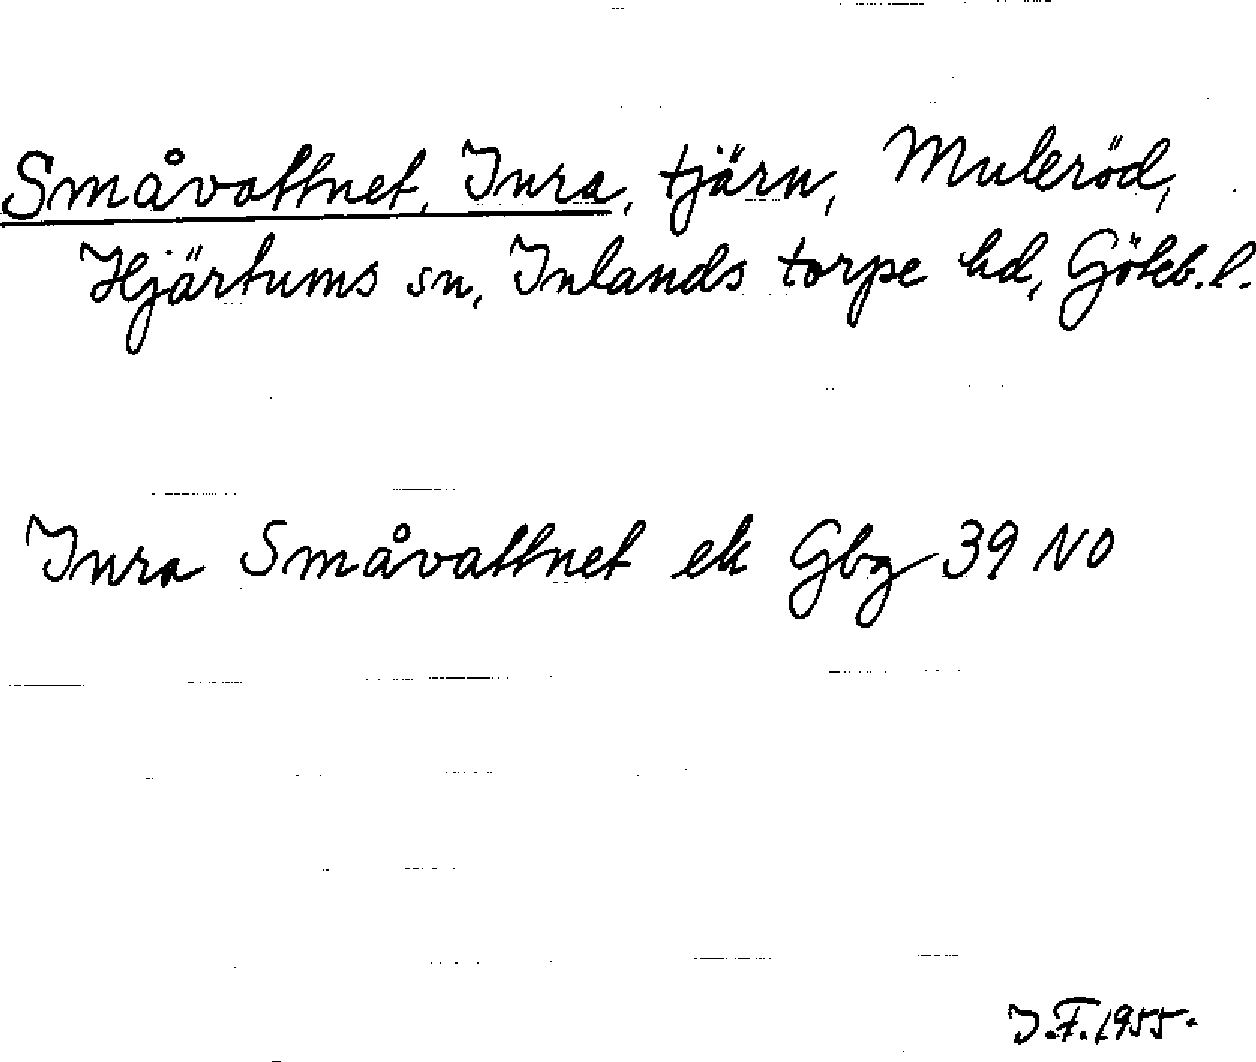 Småvattnet, Inra, tjärn, Muleröd,
Hjärtums sn, Inlands torpe hd, Göteb. l.
Inra Småvattnet ek Gbg 39 NO
J.F. 1955.